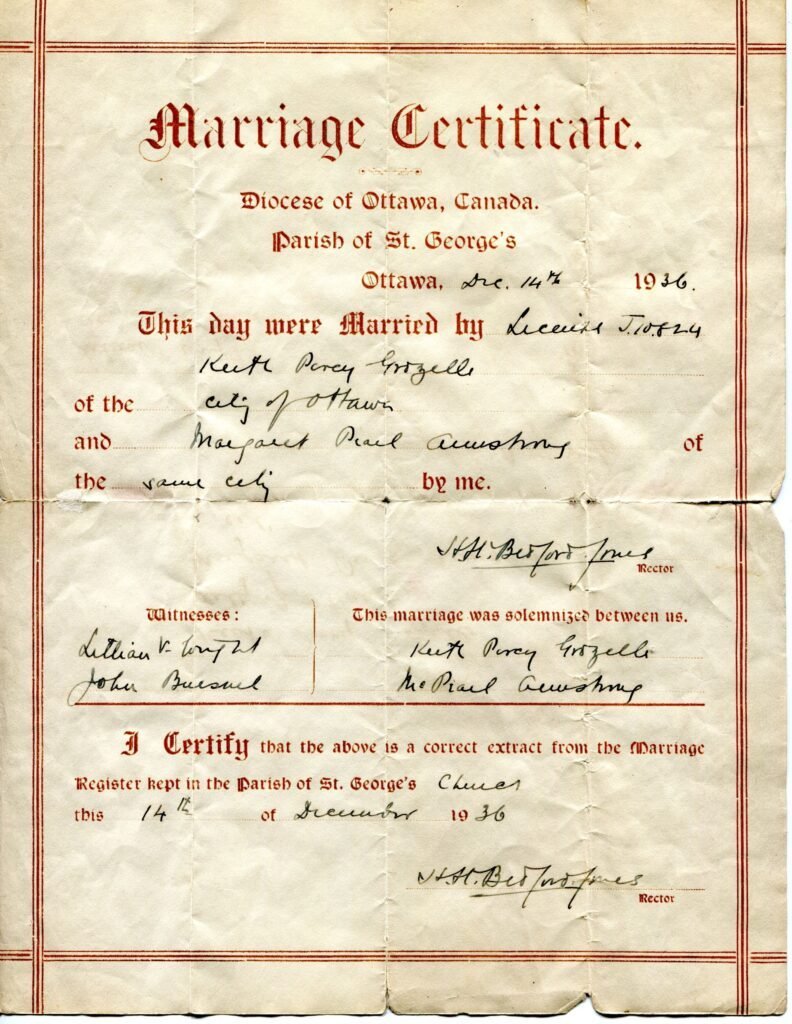 Marriage Certificate.
Diocese of Ottawa, Canada.
Parish of St. George's
Ottawa, Dec. 14th 1936.
This day were Married by License J.10824
Keith Percy Grozelle
of the city of Ottawa
and Margaret Pearl Armstrong of
the same city by me.
H.H. Bedford-Jones
Rector
Witnesses:
Lillian V. Wright
John
This marriage was solemnized between us.
Keith Percy Grozelle
Pearl Armstrong
I Certify that the above is a correct extract from the Marriage
Register kept in the Parish of St. George's Church
this 14th of December 1936
H.H. Bedford-Jones
Rector